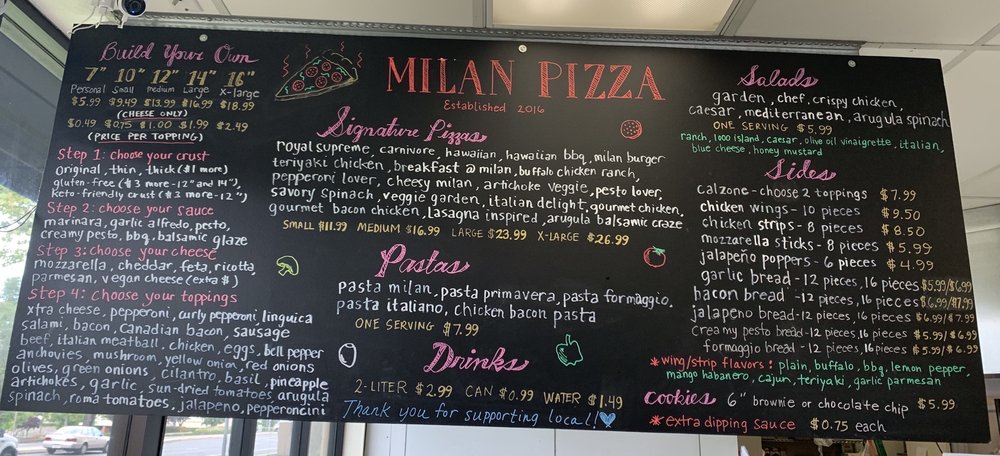 Build Your Own
7" 10" 12" 14" 16"
Personal Small medium Large X-large
$5.99 $9.49 $13.99 $16.99 $18.99
(CHEESE ONLY)
$0.49 $0.75 $1.00 $1.99 $2.49
(PRICE PER TOPPING)
Step 1: choose your crust
original, thin, thick ($1 more)
gluten-free ($3 more-12" and 14"),
keto-friendly crust ($3 more-12")
Step 2: choose your sauce
marinara, garlic alfredo, pesto,
creamy pesto, bbq, balsamic glaze
Step 3: choose your cheese
mozzarella, cheddar, feta, ricotta,
parmesan, vegan cheese (extra $)
Step 4: choose your toppings
xtra cheese, pepperoni, curly pepperoni linguica
salami, bacon, canadian bacon, sausage
beef, italian meatball, chicken, eggs, bell pepper
anchovies, mushroom, yellow onion, red onions
olives, green onions, cilantro, basil, pineapple
artichokes, garlic, sun-dried tomatoes, arugula
spinach, roma tomatoes, jalapeno, pepperoncini
MILAN PIZZA
Established 2016
Signature Pizzas
royal supreme, carnivore, hawaiian, hawaiian bbq, milan burger
teriyaki chicken, breakfast @ milan, buffalo chicken ranch,
pepperoni lover, cheesy milan, artichoke veggie, pesto lover,
savory spinach, veggie garden, italian delight, gourmet chicken,
gourmet bacon chicken, lasagna inspired, arugula balsamic craze
SMALL $11.99 MEDIUM $16.99 LARGE $23.99 X-LARGE $26.99
Pastas
pasta milan, pasta primavera, pasta formaggio,
pasta italiano, chicken bacon pasta
ONE SERVING $7.99
Drinks
2-LITER $2.99 CAN $0.99 WATER $1.49
Thank you for supporting local!
Salads
garden, chef, crispy chicken,
caesar, mediterranean, arugula spinach
ONE SERVING $5.99
ranch, 1000 island, caesar, olive oil vinaigrette, italian,
blue cheese, honey mustard
Sides
calzone - choose 2 toppings $7.99
chicken wings - 10 pieces $9.50
chicken strips - 8 pieces $8.50
mozzarella sticks - 8 pieces $5.99
jalapeño poppers - 6 pieces $4.99
garlic bread - 12 pieces, 16 pieces $5.99/$6.99
bacon bread - 12 pieces, 16 pieces $6.99/$7.99
jalapeno bread - 12 pieces, 16 pieces $6.99/$7.99
creamy pesto bread - 12 pieces, 16 pieces $5.99/$6.99
formaggio bread - 12 pieces, 16 pieces $5.99/$6.99
*wing/strip flavors: plain, buffalo, bbq, lemon pepper,
mango habanero, cajun, teriyaki, garlic parmesan
cookies 6" brownie or chocolate chip $5.99
*extra dipping sauce $0.75 each